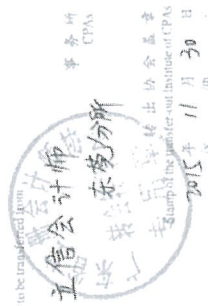 to be transferred from
立信会计师
事务所
CPAs
东莞分所
转出协会盖章
Stamp of the transfer-out Institute of CPAs
2015年 11月 30日